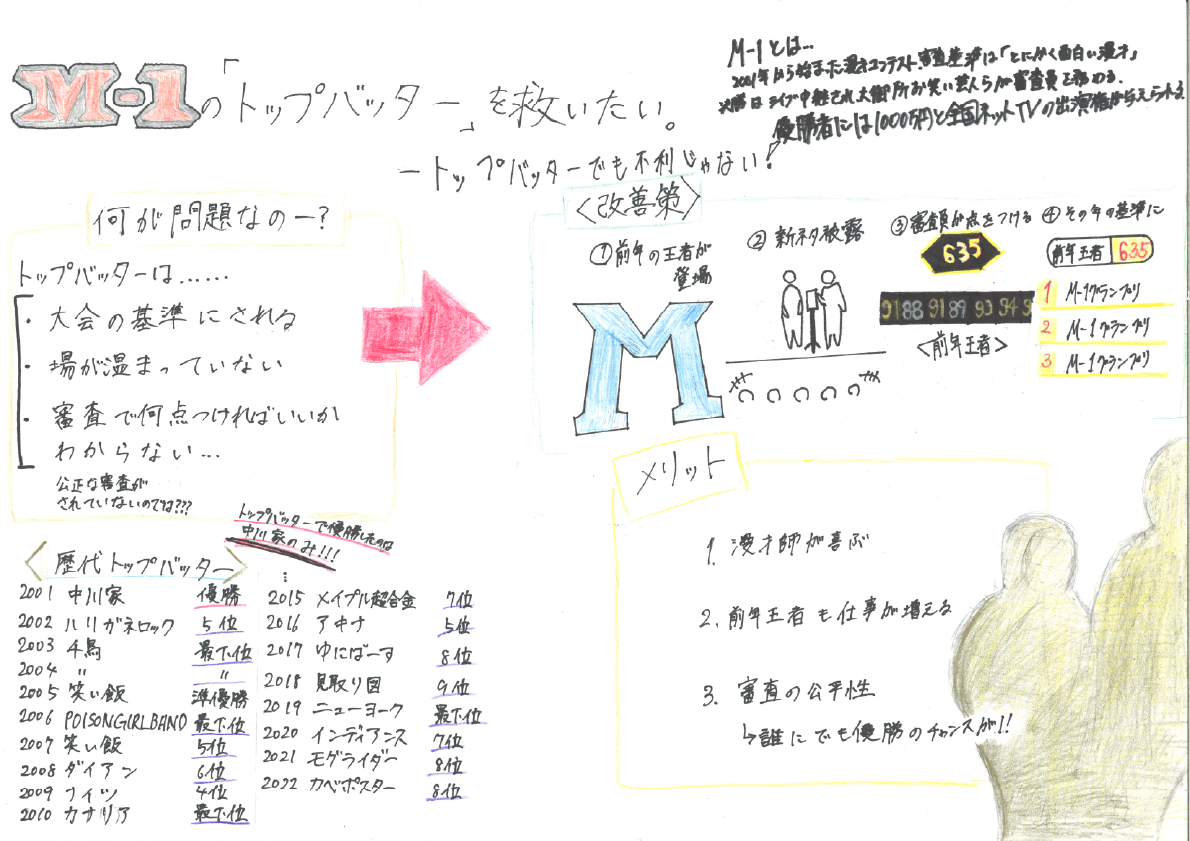 M-1の「トップバッター」を救いたい。
ートップバッターでも不利じゃない!
M-1とは…
2001年から始まった漫才コンテスト.審査基準は「とにかく面白い漫才」
決勝はライブ中継され大御所お笑い芸人らが審査員を務める.
優勝者には1000万円と全国ネットTVの出演権が与えられる
何が問題なのー?
トップバッターは……
・大会の基準にされる
・場が温まっていない
・審査で何点つければいいか
わからない…
公正な審査が
されていないのでは???
<改善策>
①前年の王者が
登場
M
②新ネタ披露
③審査員が点をつける
635
91 88 91 89 93 94 9
<前年王者>
④その年の基準に
前年王者 635
1 M-1グランプリ
2 M-1グランプリ
3 M-1グランプリ
<歴代トップバッター>
トップバッターで優勝したのは
中川家のみ!!!
2001 中川家 優勝
2002 ハリガネロック 5位
2003 千鳥 最下位
2004 〃 〃
2005 笑い飯 準優勝
2006 POISONGIRLBAND 最下位
2007 笑い飯 5位
2008 ダイアン 6位
2009 ナイツ 4位
2010 カナリア 最下位
⋮
2015 メイプル超合金 7位
2016 アキナ 5位
2017 ゆにばーす 8位
2018 見取り図 9位
2019 ニューヨーク 最下位
2020 インディアンス 7位
2021 モグライダー 8位
2022 カベポスター 8位
メリット
1. 漫才師が喜ぶ
2. 前年王者も仕事が増える
3. 審査の公平性
↳誰にでも優勝のチャンスが!!